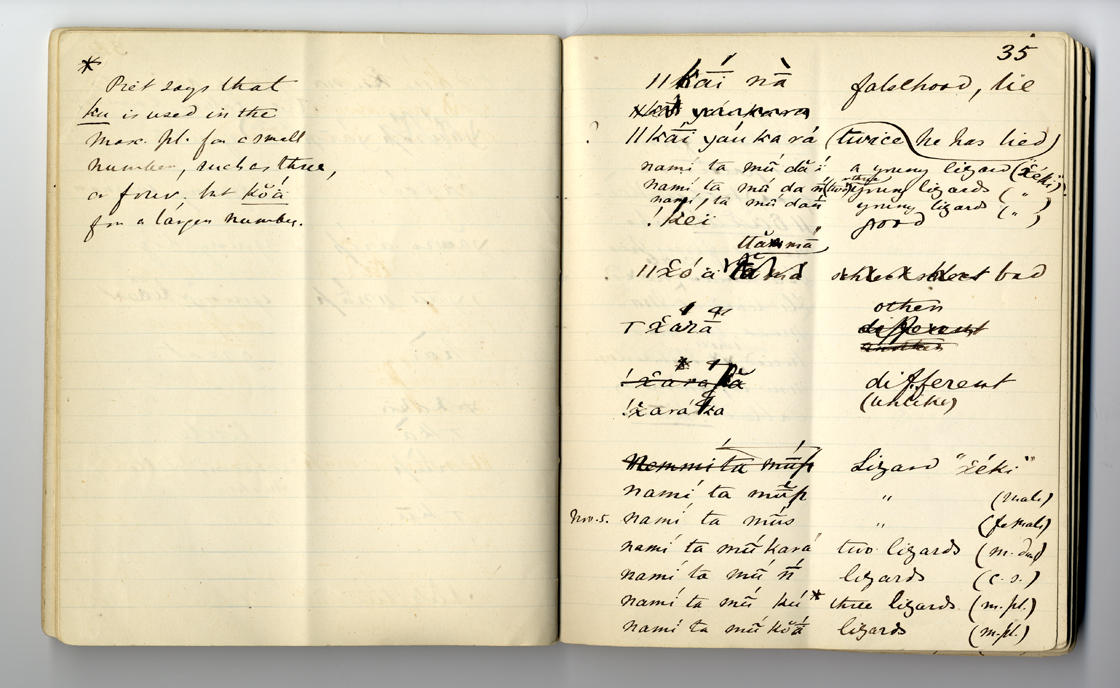 *
Piet says that
ku is used in the
masc. pl. for a small
number, such as three,
or four, but kŏā́
for a larger number.
35
ǁkā́ĩ nà falsehood, lie
? ǁkāĩ yáu kará (twice he has lied)
namí ta mū́ dă í a young lizard ("ẋéki")
namí ta mū́ da young lizards ( " )
namí ta mū́ dan̄ young lizards ( " )
!kéi good
ttămmā
ǁẋó ā bad
other
τ ẋárā́ different
another
!ẋara different
!ẋará ka (unlike)
Nemmi ta mū́p Lizard "ẋéki"
namí ta mū̃p " (male)
Nov. 5. namí ta mūs " (female)
namí ta mū́ kará two lizards (m. du)
namí ta mū́ n̄́ lizards (c. s.)
namí ta mū́ kú * three lizards (m. pl.)
namí ta mū́ kŏā́ lizards (m. pl.)